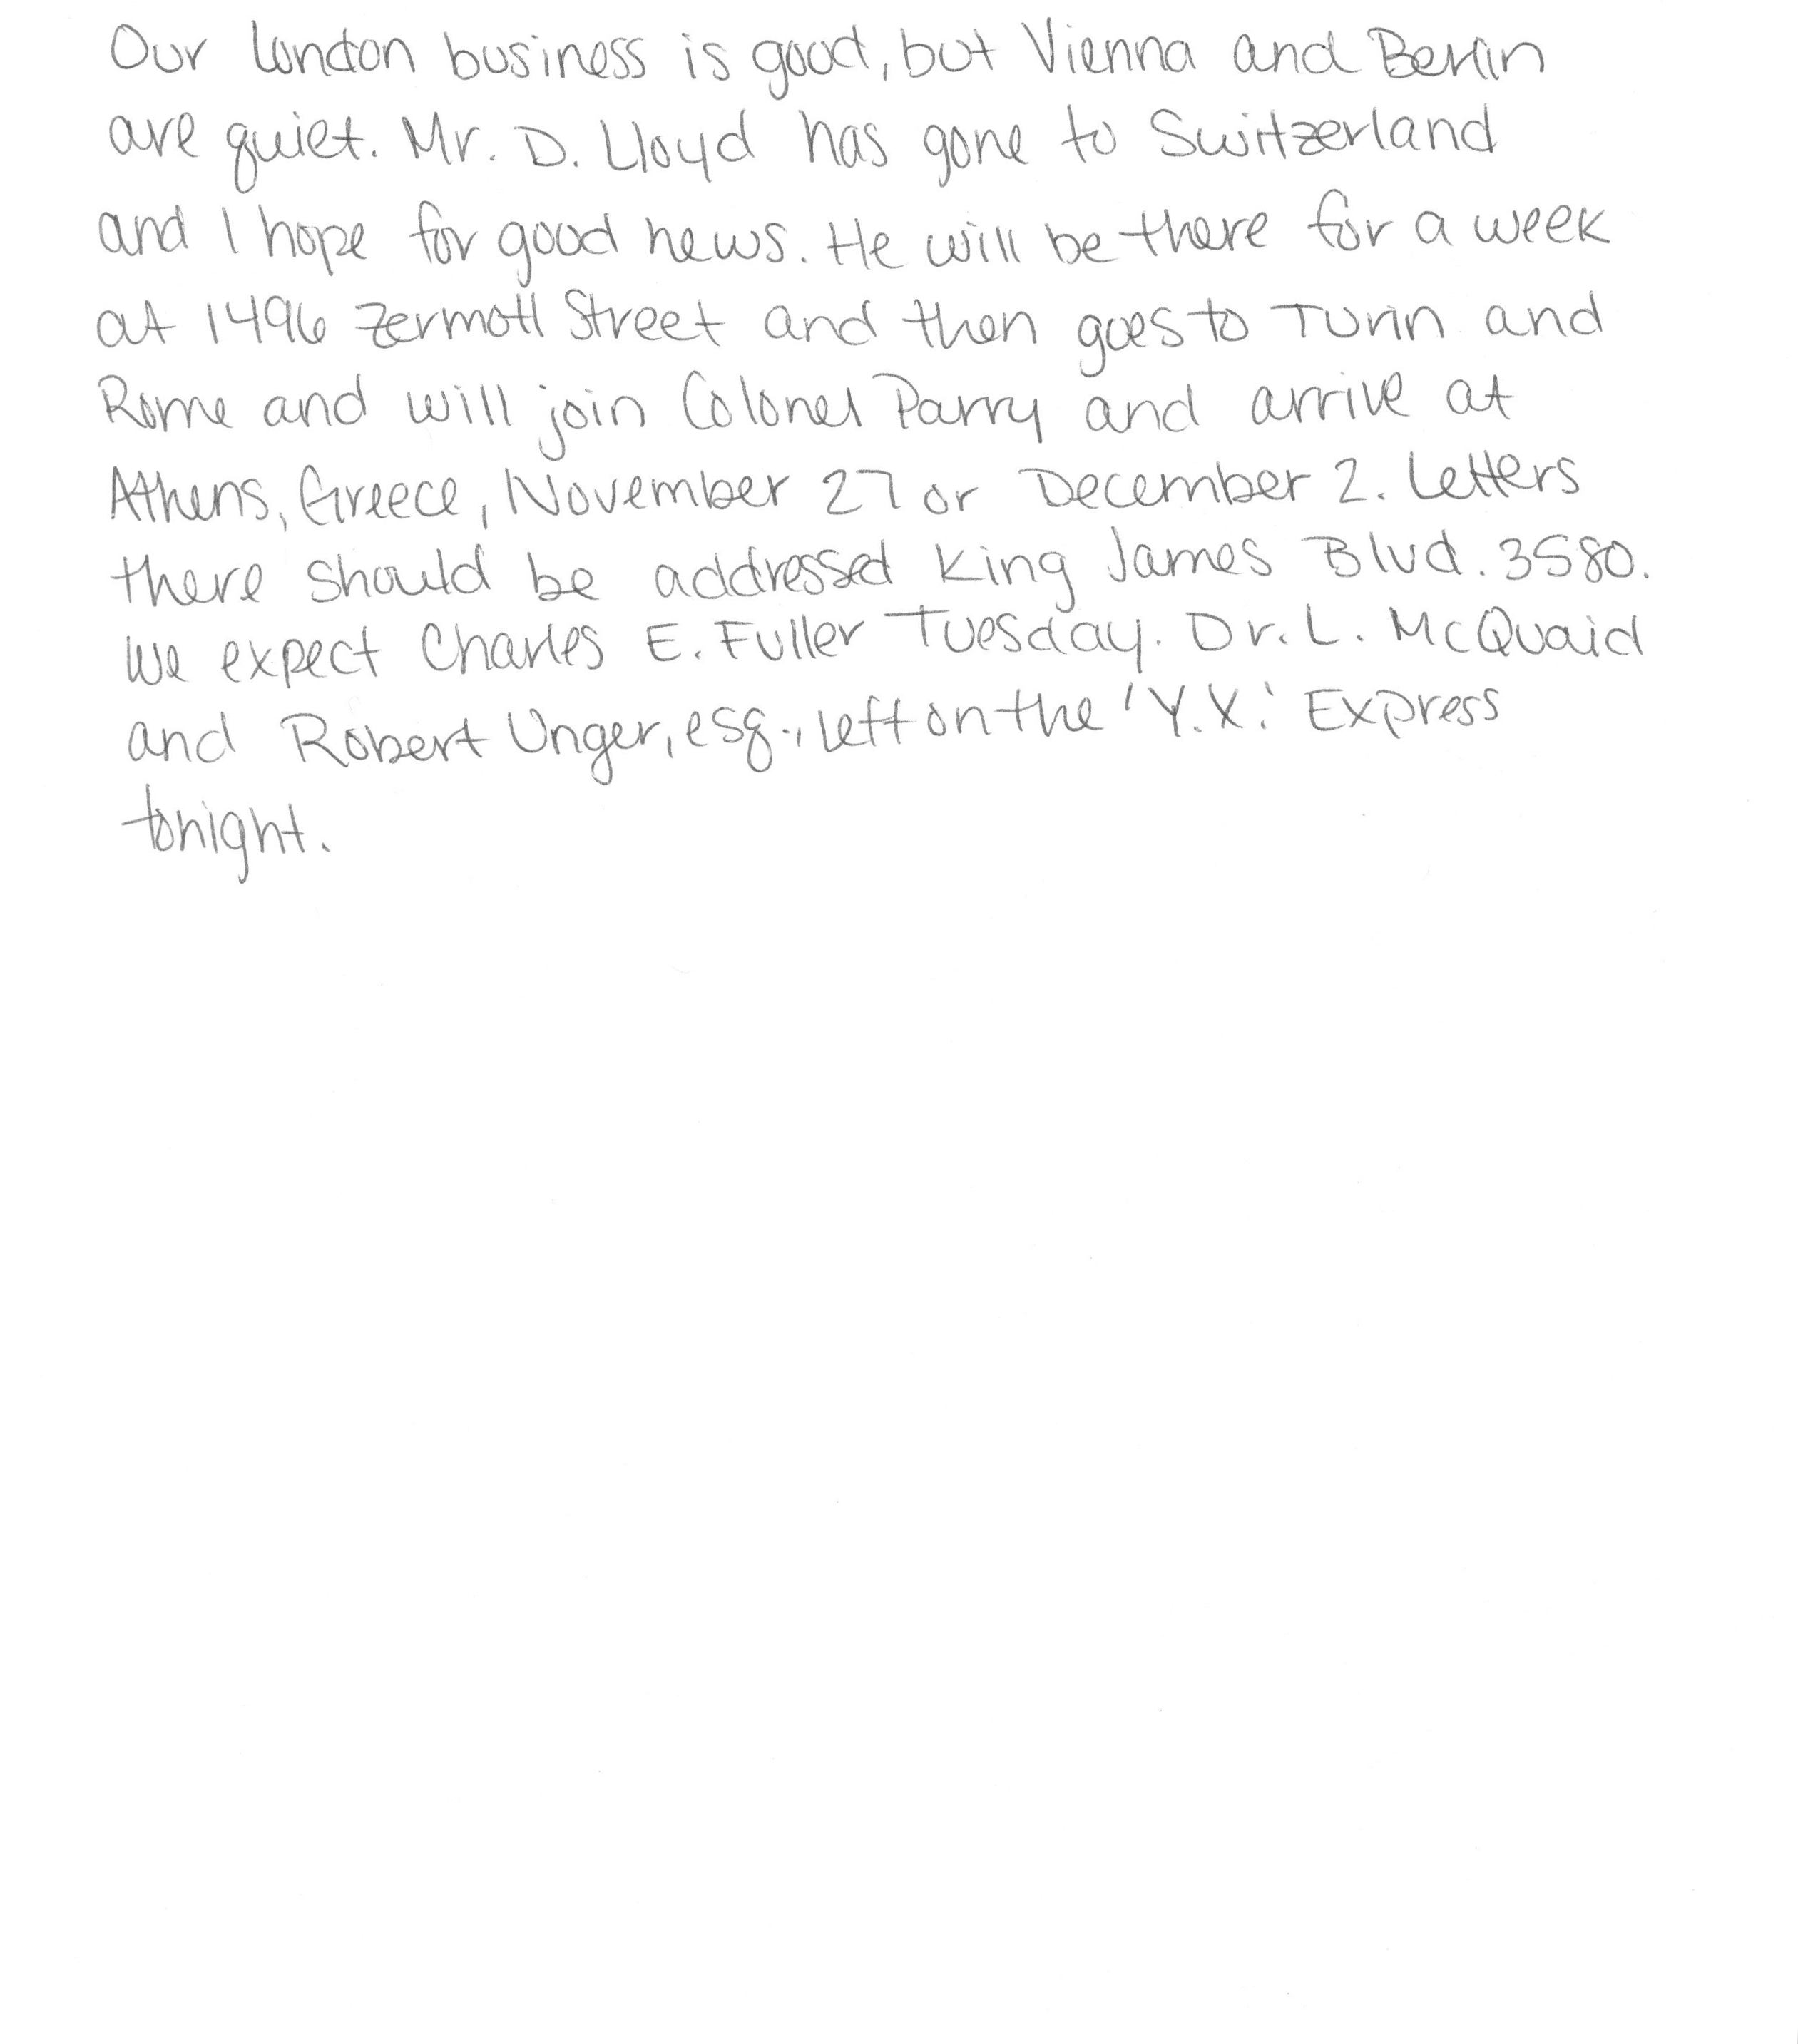 Our London business is good, but Vienna and Berlin
are quiet. Mr. D. Lloyd has gone to Switzerland
and I hope for good news. He will be there for a week
at 1496 Zermott Street and then goes to Turin and
Rome and will join Colonel Parry and arrive at
Athens, Greece, November 27 or December 2. Letters
there should be addressed King James Blvd. 3580.
We expect Charles E. Fuller Tuesday. Dr. L. McQuaid
and Robert Unger, esq., left on the 'Y.X.' Express
tonight.